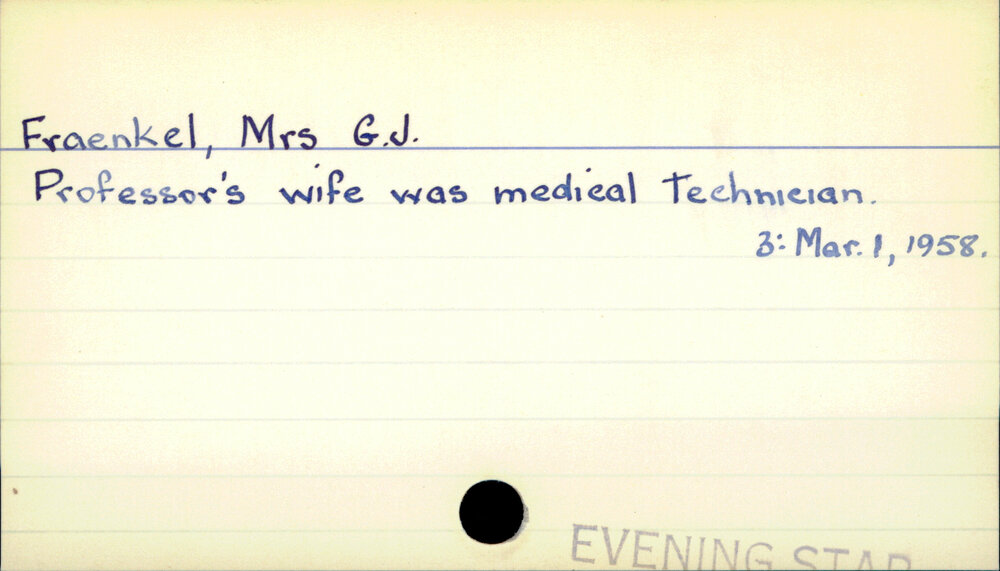 Fraenkel, Mrs G.J.
Professor's wife was medical technician.
3: Mar. 1, 1958.
EVENING STAR